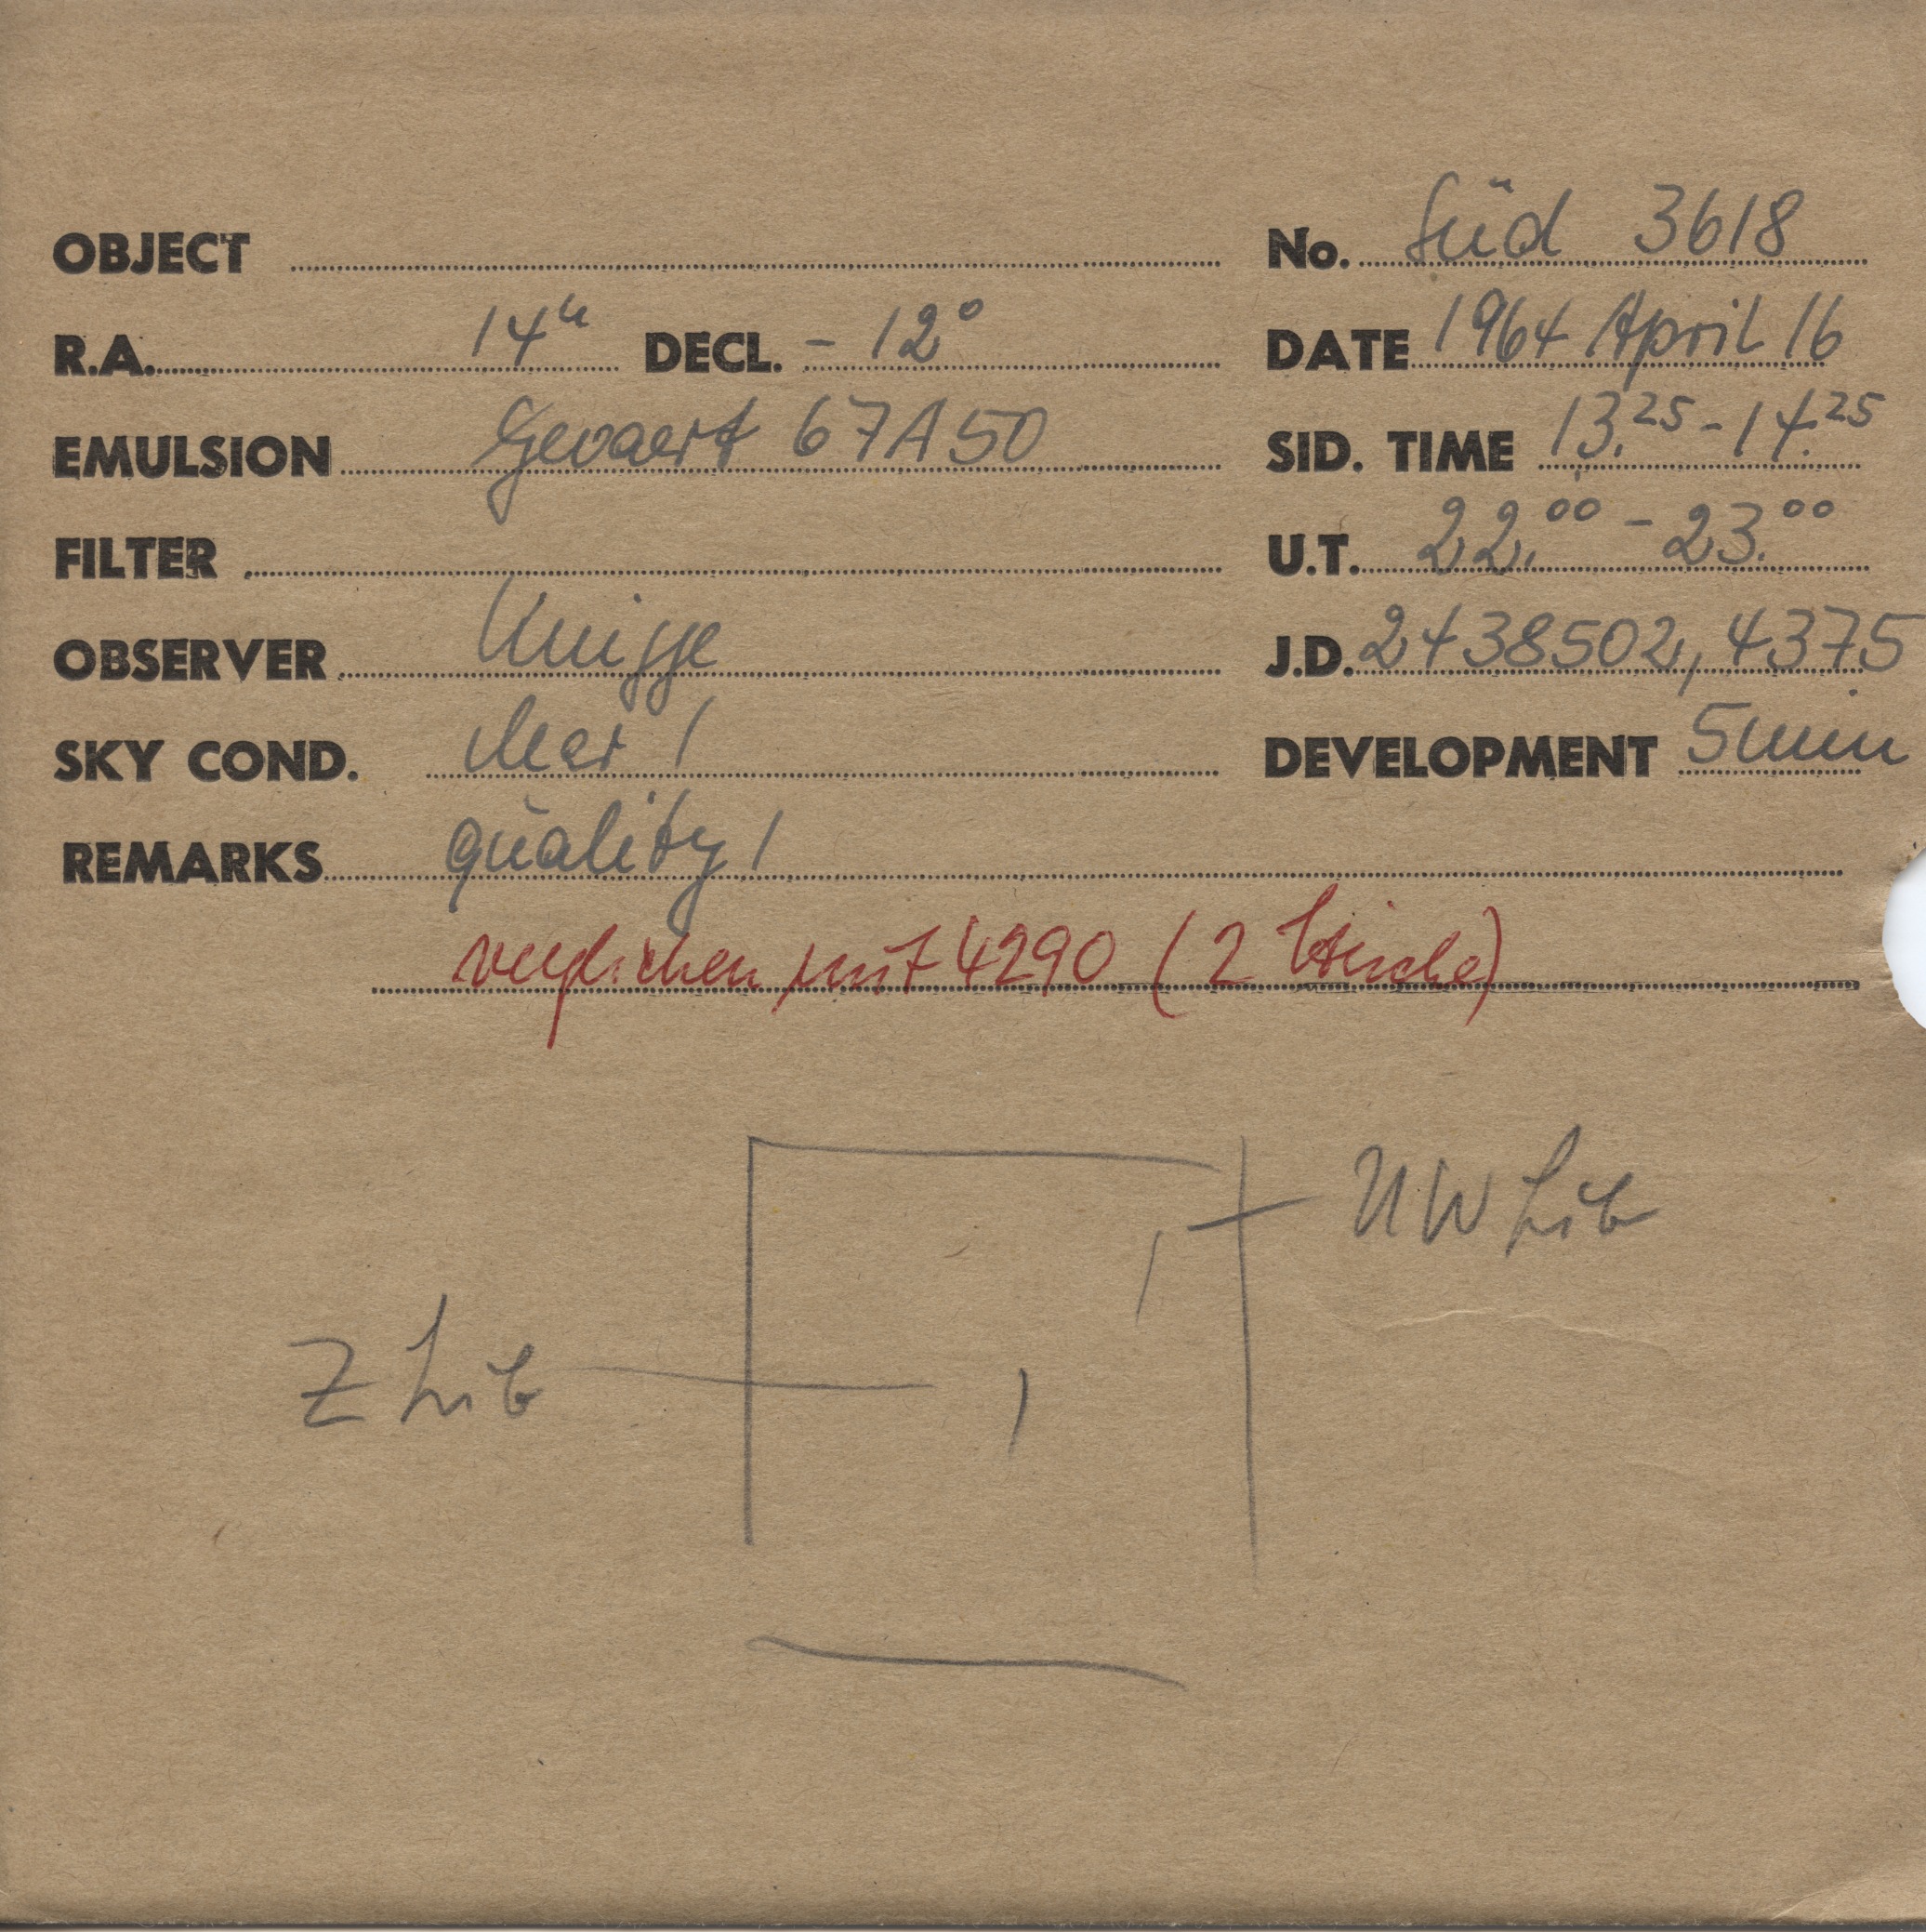 OBJECT No. Süd 3618
R.A. 14h DECL. - 12°
DATE 1964 April 16
EMULSION Gevaert 67A50
SID. TIME 13.25 - 14.25
FILTER U.T. 22.00 - 23.00
OBSERVER Knigge J.D. 2438502,4375
SKY COND. clear 1 DEVELOPMENT 5min
REMARKS quality 1
verglichen mit 4290 (2 Striche)
UW Lib
Z Lib